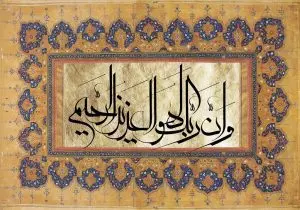 وان ربك لهو العزيز الرحيم